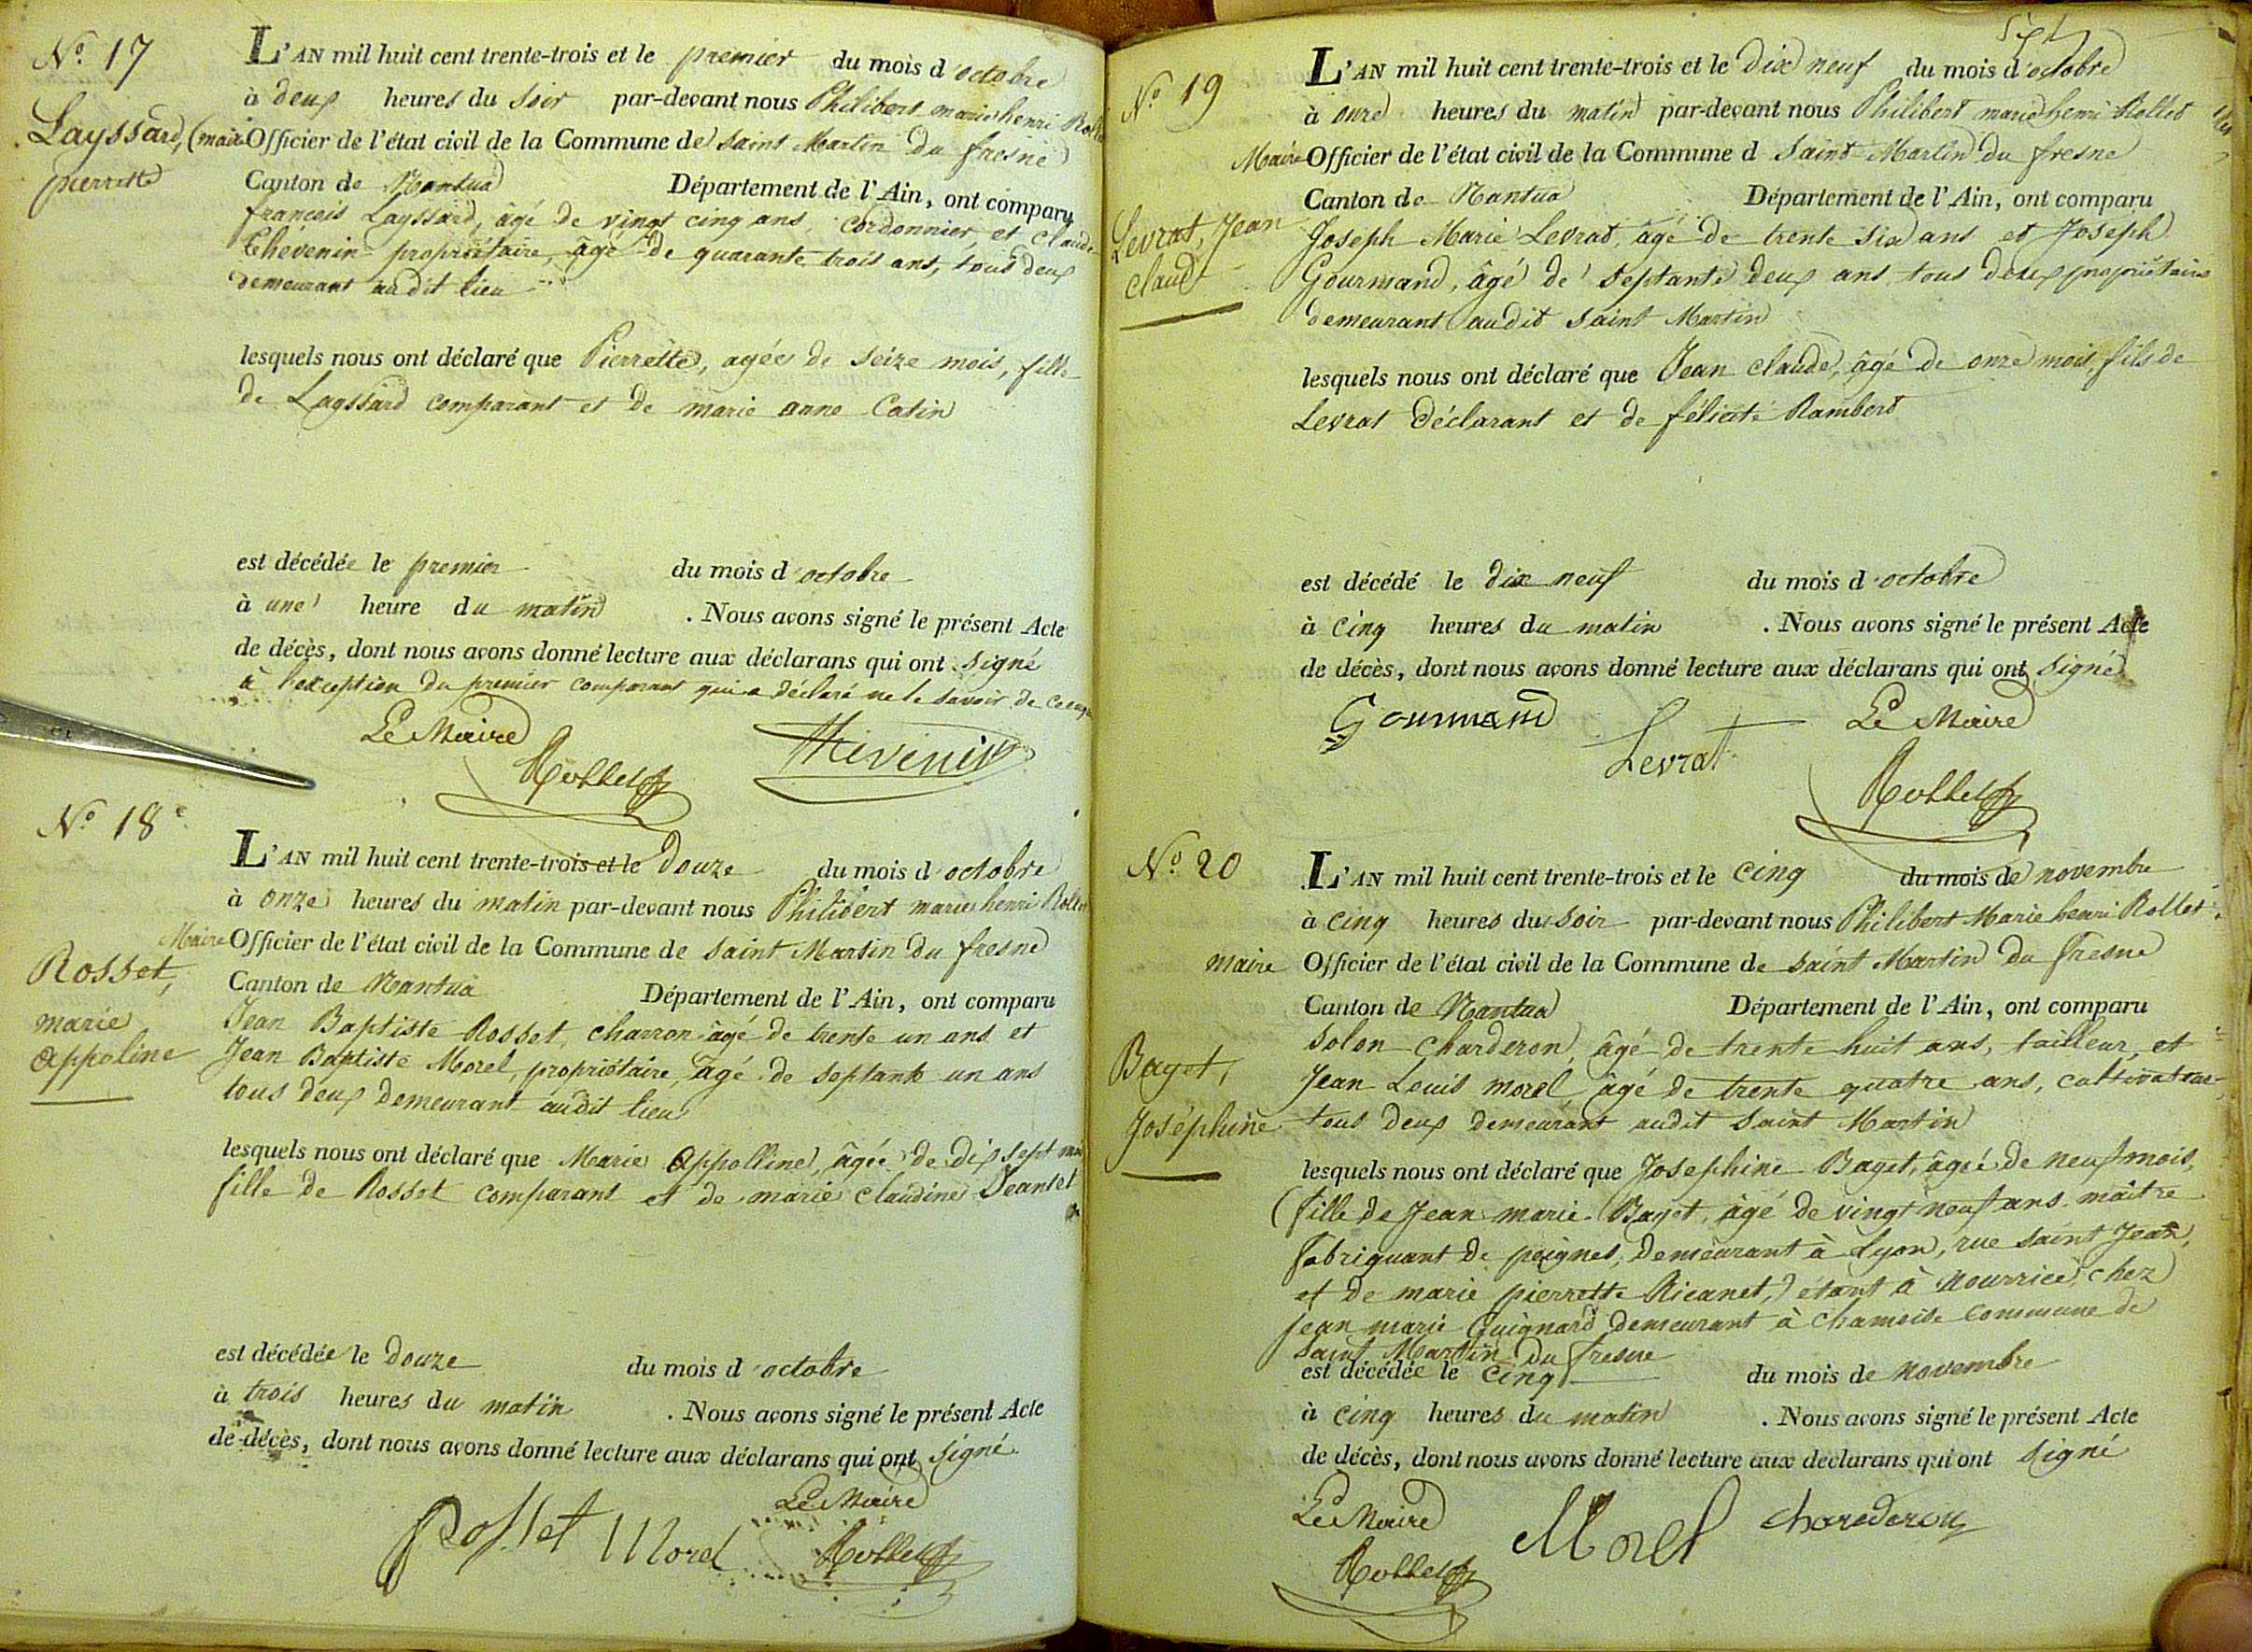 N.º 17
Layssard,
pierrette
L'AN mil huit cent trente-trois et le premier du mois d'octobre
à deux heures du soir par-devant nous Philibert marie henri Rollet
(maire Officier de l'état civil de la Commune de saint Martin du fresne
Canton de Nantua Département de l'Ain, ont comparu
françois Layssard, âgé de vingt cinq ans, cordonnier, et claude
Thévenin propriétaire, âgé de quarante trois ans, tous deux
demeurant audit lieu
lesquels nous ont déclaré que Pierrette, agée de seize mois, fille
de Layssard comparant et de marie anne Catin
est décédée le premier du mois d'octobre
à une heure du matin . Nous avons signé le présent Acte
de décès, dont nous avons donné lecture aux déclarans qui ont signé
à l'exception du premier comparant qui a déclaré ne le savoir de ce enquis
Le Maire
Rollet
Thevenin
N.º 18
Rosset,
marie
appoline
L'AN mil huit cent trente-trois et le douze du mois d'octobre
à onze heures du matin par-devant nous Philibert marie henri Rollet
Maire Officier de l'état civil de la Commune de saint Martin du fresne
Canton de Nantua Département de l'Ain, ont comparu
Jean Baptiste Rosset, charron âgé de trente un ans et
Jean Baptiste Morel, propriétaire, âgé de septante un ans
tous deux demeurant audit lieu
lesquels nous ont déclaré que Marie Appolline, âgée de dix sept mois
fille de Rosset comparant et de marie claudine Jeantet
est décédée le douze du mois d'octobre
à trois heures du matin . Nous avons signé le présent Acte
de décès, dont nous avons donné lecture aux déclarans qui ont signé.
Le Maire
Rosset Morel Rollet
sept
N.º 19
Levrat, Jean
claude
L'AN mil huit cent trente-trois et le dix neuf du mois d'octobre
à onze heures du matin par-devant nous Philibert marie henri Rollet
Maire Officier de l'état civil de la Commune d saint Martin du fresne
Canton de Nantua Département de l'Ain, ont comparu
Joseph Marie Levrat, âgé de trente six ans et Joseph
Gourmand, âgé de septante deux ans tous deux propriétaires
demeurant audit saint Martin
lesquels nous ont déclaré que Jean claude, âgé de onze mois, fils de
Levrat déclarant et de félicité Rambert
est décédé le dix neuf du mois d'octobre
à cinq heures du matin . Nous avons signé le présent Acte
de décès, dont nous avons donné lecture aux déclarans qui ont signé
Gourmand Levrat Le Maire
Rollet
N.º 20
Bayet,
Joséphine
L'AN mil huit cent trente-trois et le cinq du mois de novembre
à cinq heures du soir par-devant nous Philibert Marie henri Rollet
maire Officier de l'état civil de la Commune de saint Martin du fresne
Canton de Nantua Département de l'Ain, ont comparu
Solon Charderon, âgé de trente huit ans, tailleur, et
Jean Louis morel âgé de trente quatre ans, cultivateur
tous deux demeurant audit saint Martin
lesquels nous ont déclaré que Josephine Bayet, âgée de neuf mois,
(fille de Jean marie Bayet, âgé de vingt neuf ans, maître
fabriquant de peignes, demeurant à Lyon, rue saint Jean,
et de marie pierrette Ricanet,) étant à nourrice chez
jean marie Guignard demeurant à chamoise commune de
saint Martin du fresne
est décédée le cinq du mois de novembre
à cinq heures du matin . Nous avons signé le présent Acte
de décès, dont nous avons donné lecture aux déclarans qui ont signé
Le Maire
Rollet
Morel Charderon